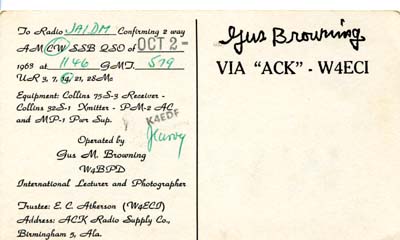 To Radio JA1DM Confirming 2 way
AM CW SSB QSO of OCT 2 -
1963 at 1146 GMT. 579
UR 3, 7, 14, 21, 28Mc
Equipment: Collins 75S-3 Receiver -
Collins 32S-1 Xmitter - PM-2 AC
and MP-1 Pwr Sup.
K4EDF
Harvey
Operated by
Gus M. Browning
W4BPD
International Lecturer and Photographer
Trustee: E. C. Atkerson (W4ECI)
Address: ACK Radio Supply Co.,
Birmingham 5, Ala.
Gus Browning
VIA "ACK" - W4ECI